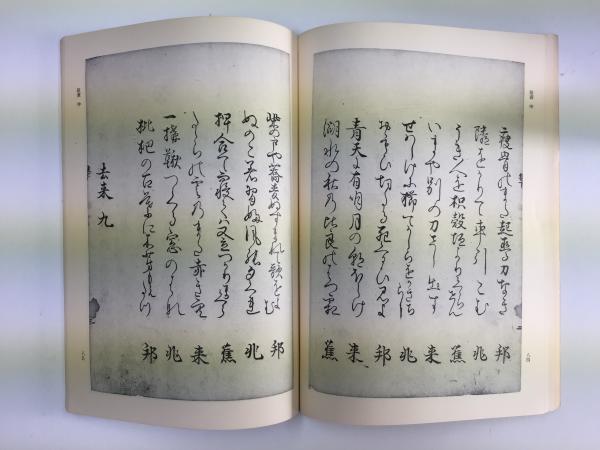 痩骨のまた起直る力なき 邦
隣をかりて車引こむ 兆
うき人を枳穀垣よりくゝらせん 蕉
いまや別の刀さし出す 来
せはしけに櫛てかしらをかきちらし 兆
おもひ切たる死くるひ見よ 邦
青天に有明月の朝ほらけ 来
湖水の秋の比良のはつ霜 蕉
八四
柴の戸や蕎麦ぬすまれて歌をよむ 邦
ぬのこ着習ふ風の夕くれ 兆
押合て寝ては又立つかりまくら 蕉
たゝらの雲のまた赤き空 来
一構鞦つくる窓のはな 兆
枇杷の古葉に木芽もえたつ 邦
去来 九
八五